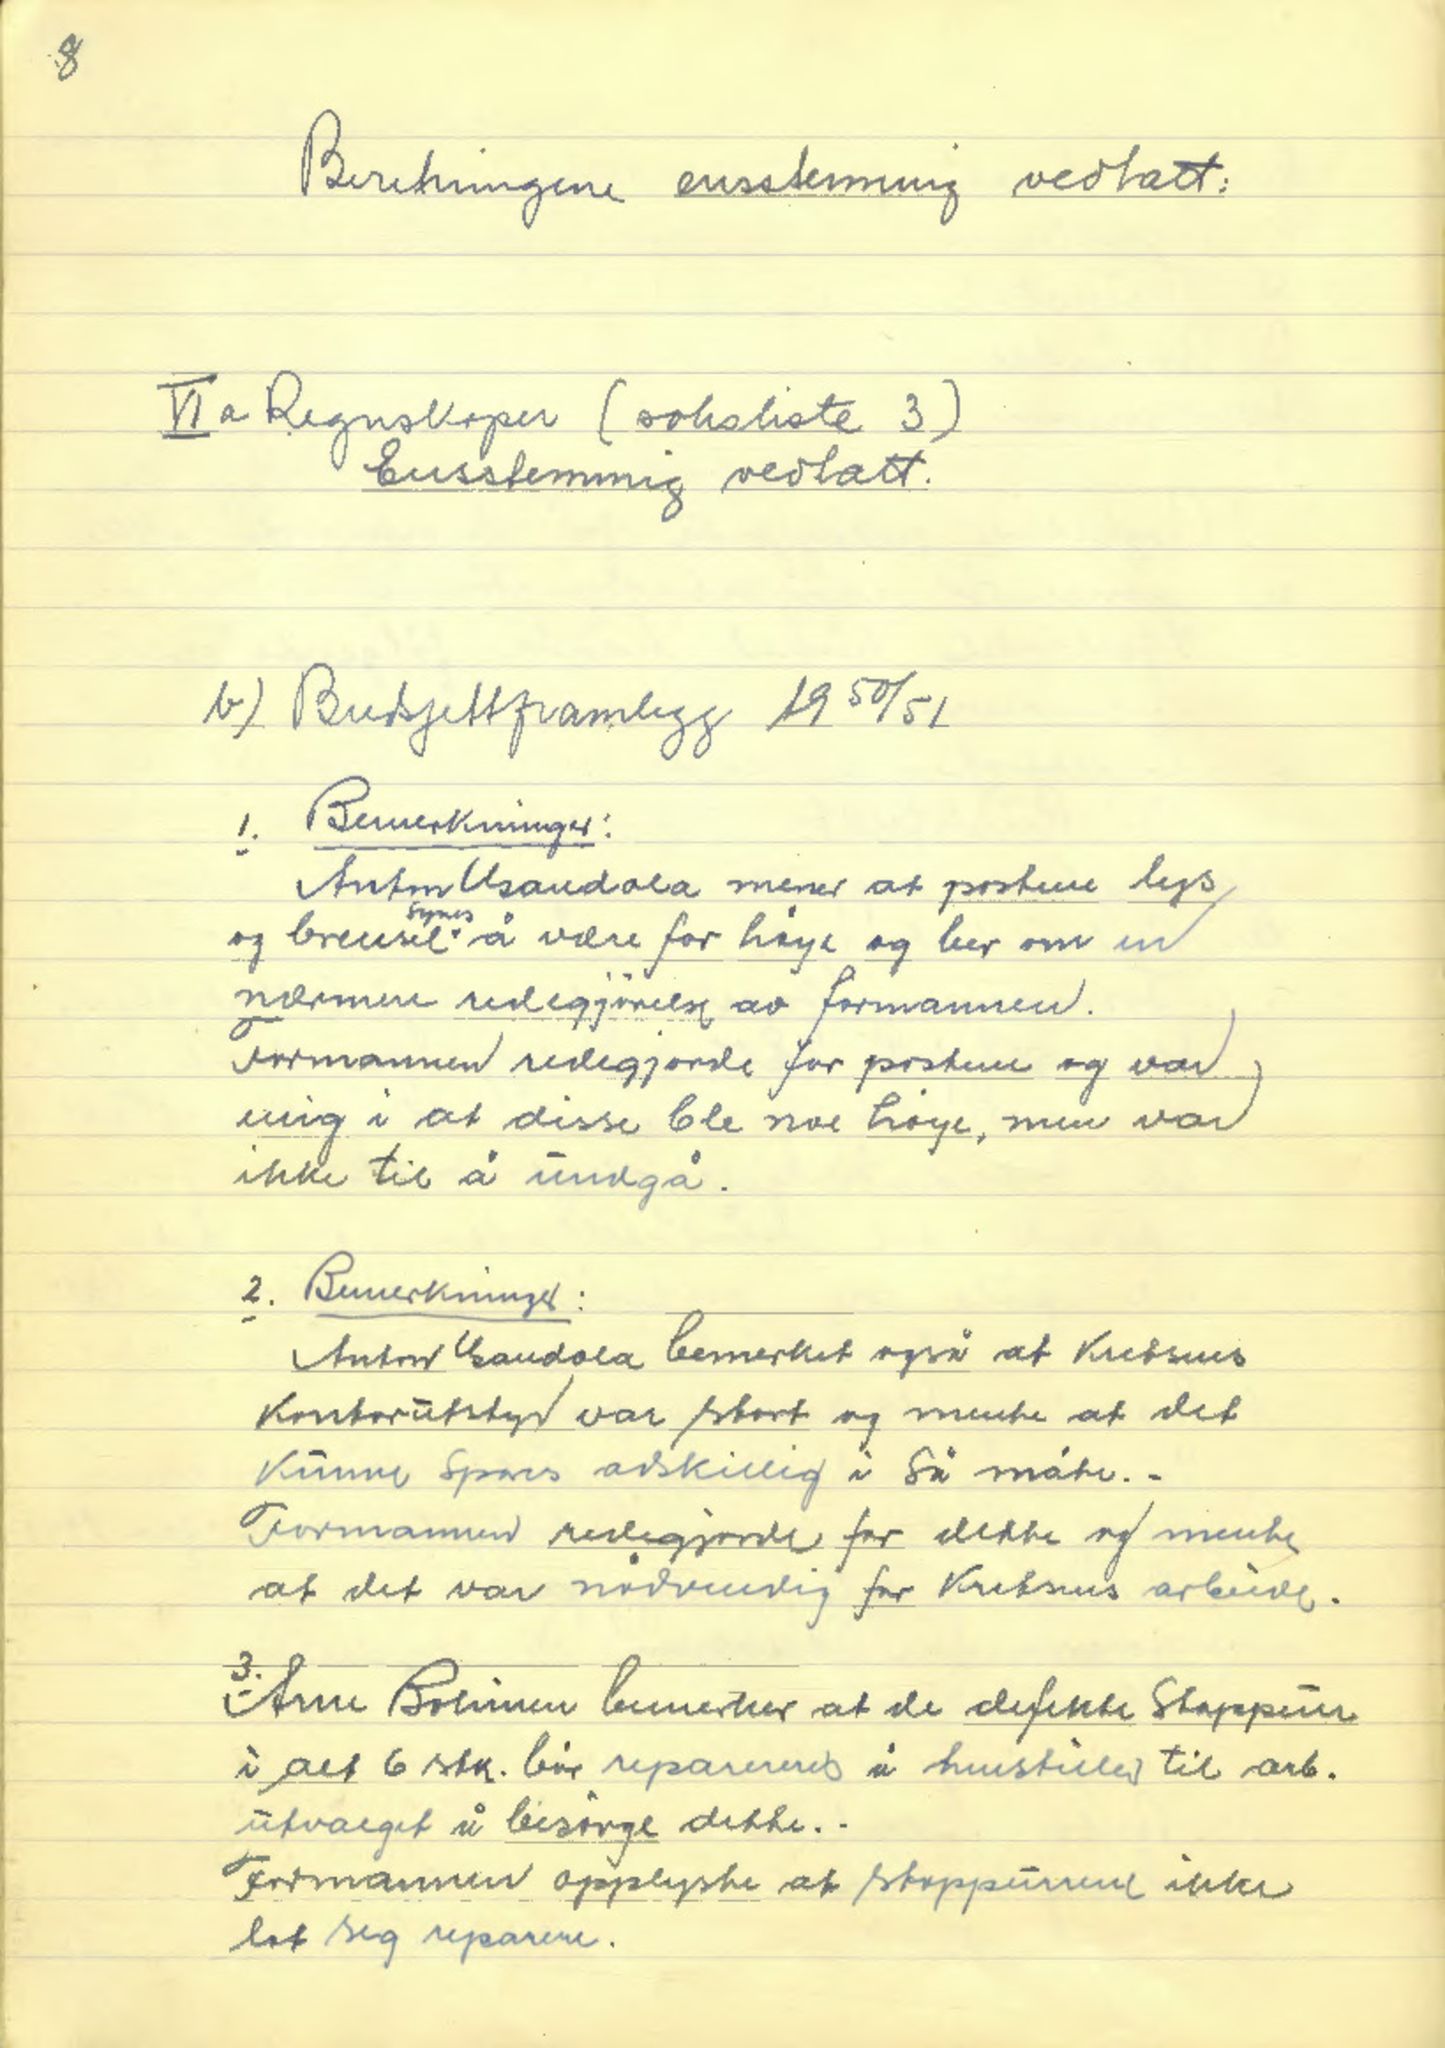 8
Beretningene ensstemmig vedtatt:
VI a Regnskaper (saksliste 3)
Ensstemmig vedtatt.
b) Budsjettframlegg 1950/51
1. Bemerkninger:
Anton Usandøla mener at postene lys
og brensel synes å være for høye og ber om en
nærmere redegjørelse av formannen.
Formannen redegjorde for postene og var
enig i at disse ble noe høye, men var
ikke til å undgå.
2. Bemerkninger:
Anton Usandøla bemerket også at Kretsens
Kontorutstyr var stort og mente at det
Kunne Spares adskillig i Så måte. -
Formannen redegjorde for dette og mente
at det var nødvendig for Kretsens arbeide.
3.
Arne bemerker at de defekte Stoppeur
i alt 6 stk. bør repareres å henstiller til arb.
utvalget å besørge dette. -
Formannen opplyste at stoppeurene ikke
lot seg reparere.